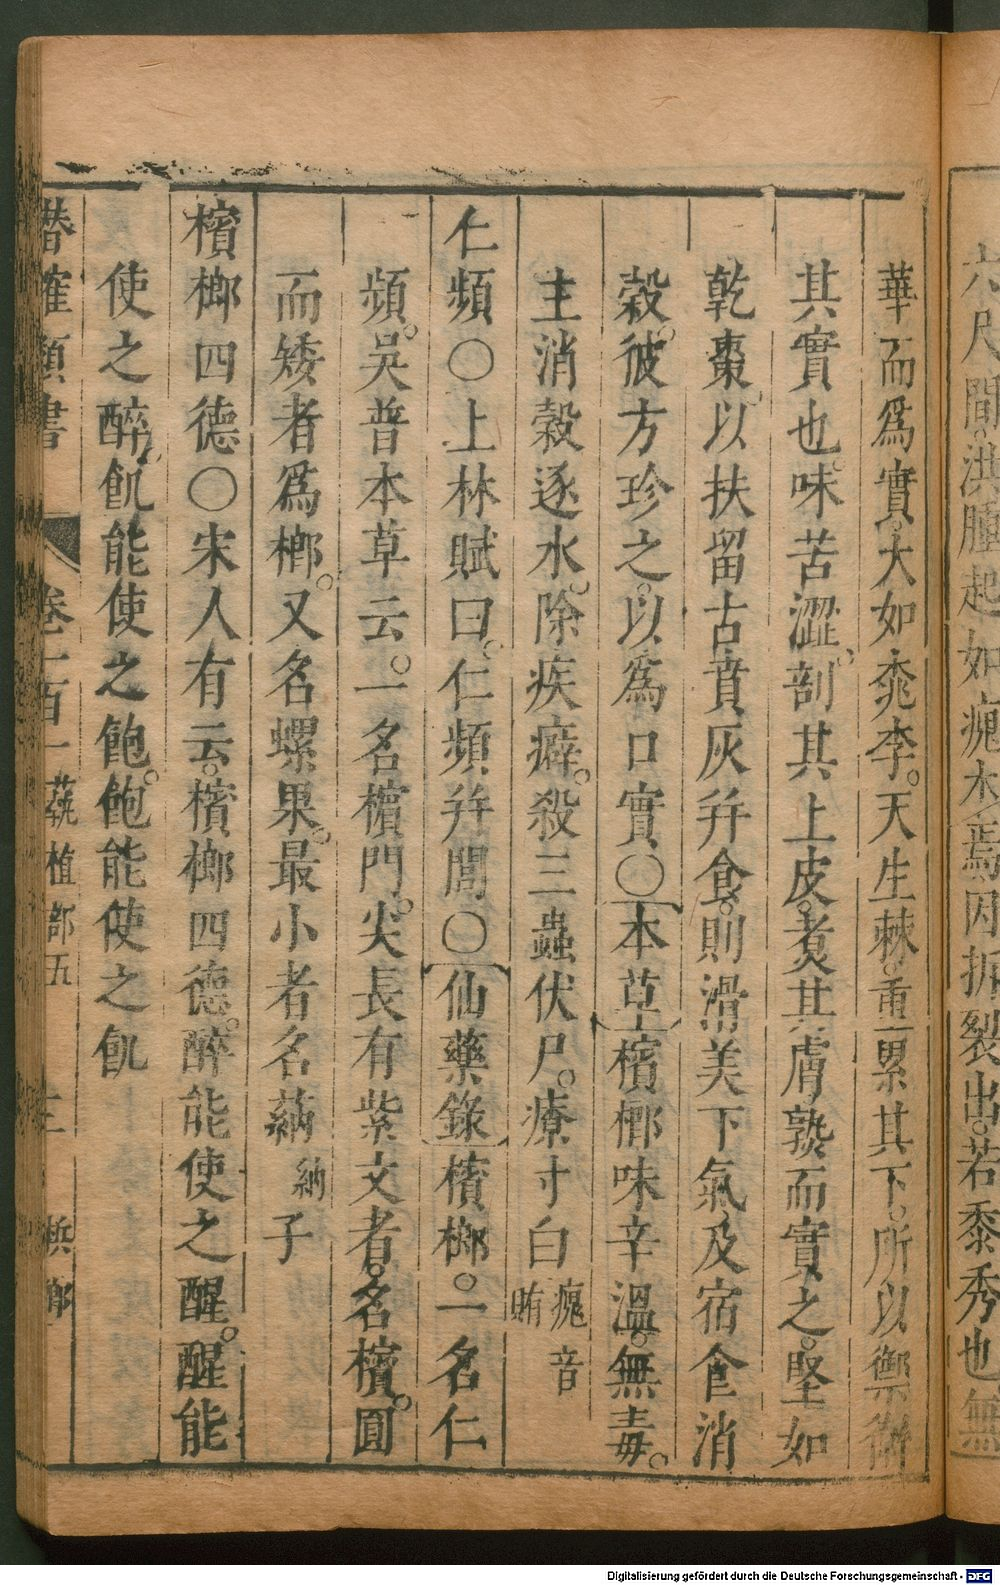 六尺間洪腫起如瘣木焉因拆裂出若黍秀也無
華而爲實大如桃李。天生棘重累其下。所以禦衛
其實也。味苦澀。剖其上皮。煑其膚熟而實之。堅如
乾棗。以扶留古賁灰并食。則滑美下氣及宿食消
穀。彼方珍之。以爲口實〇本草檳榔味辛溫。無毒。
主消穀逐水。除疾癖。殺三蟲伏尸。療寸白瘣音賄
仁頻〇上林賦曰。仁頻并閭〇仙藥錄檳榔。一名仁
頻。吳普本草云。一名檳門。尖長有紫文者。名檳。圓
而矮者爲榔。又名螺果。最小者名蒳納子
檳榔四德〇宋人有云。檳榔四德。醉能使之醒。醒能
使之醉。飢能使之飽。飽能使之飢
潛確類書 卷一百一 蓺植部五 檳榔
Digitalisierung gefördert durch die Deutsche Forschungsgemeinschaft - DFG